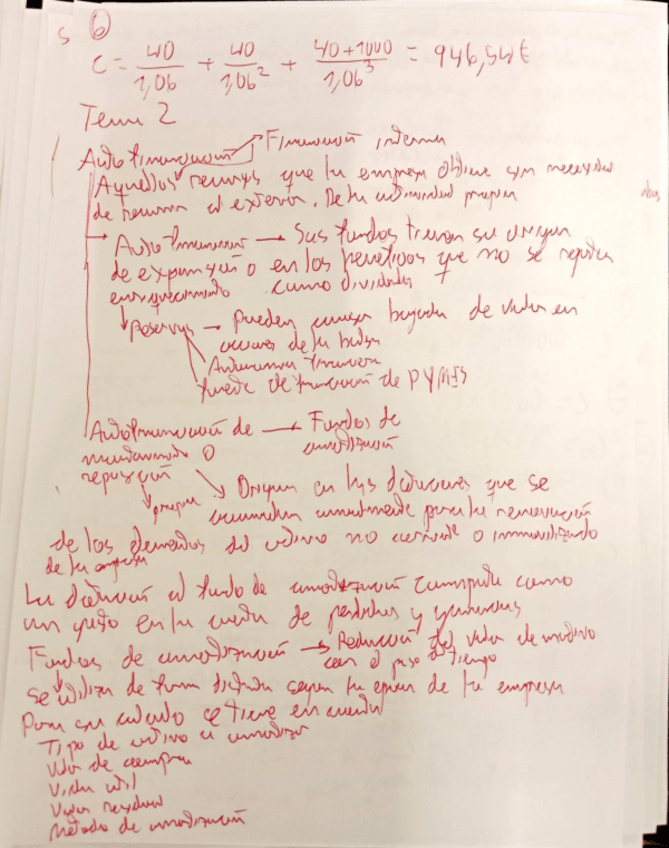 5 6
C = 40/1,06 + 40/1,06² + 40+1000/1,06³ = 946,54€
Tema 2
Autofinanciación → Financiación interna
Aquellos recursos que la empresa obtiene sin necesidad
de recurrir al exterior. De la actividad propia
→ Autofinanciación → Sus fondos tienen su origen
de expansión o en los beneficios que no se reparten
enriquecimiento como dividendos
↓ Reservas → Pueden causar bajada de valor en
acciones de la bolsa
Autonomía financiera
fuente de financiación de PYMES
Autofinanciación de → Fondos de
mantenimiento o amortización
reposición
↓ propia ↘ Origen en las dotaciones que se
acumulan anualmente para la renovación
de los elementos del activo no corriente o inmovilizado
de la empresa
La dotación al fondo de amortización computa como
un gasto en la cuenta de pérdidas y ganancias
Fondos de amortización → Reducción del valor de
con el paso de tiempo
Se utiliza de forma distinta según la época de la empresa
Para su cálculo se tiene en cuenta
Tipo de activo a amortizar
Valor de compra
Vida util
Valor residual
Método de amortización